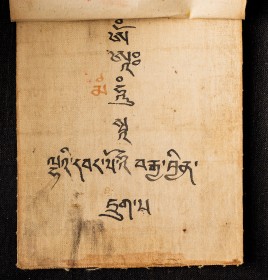 ཨོཾ
ཨཱཿ
མཾ ཧཱུྃ
ལྷའི་དབང་པོའི་བརྒྱ་བྱིན་
དྲུག་པ